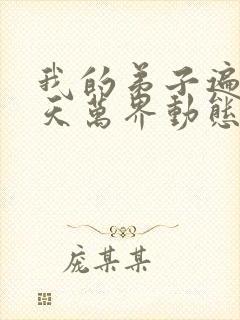 我的弟子遍
天萬界動態
庞某某